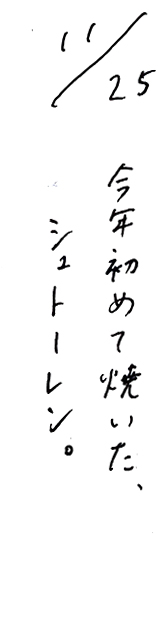 11/25
今年初めて焼いた、
シュトーレン。